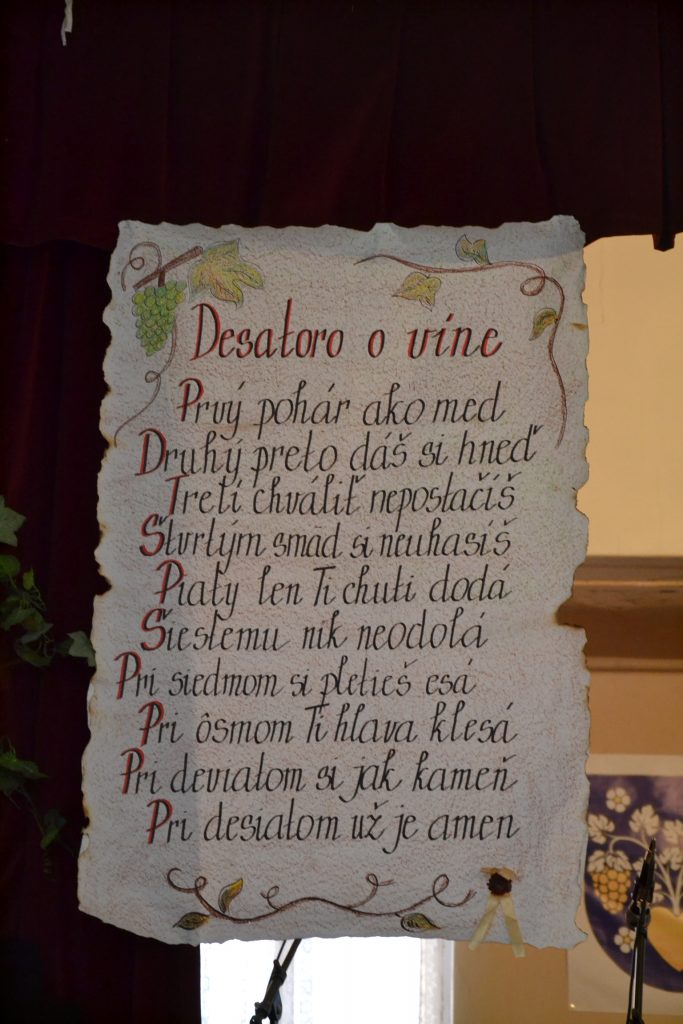 Desatoro o víne
Prvý pohár ako med
Druhý preto dáš si hneď
Tretí chváliť nepostačíš
Štvrtým smäd si neuhasíš
Piaty len Ti chuti dodá
Šiestemu nik neodolá
Pri siedmom si pletieš esá
Pri ôsmom Ti hlava klesá
Pri deviatom si jak kameň
Pri desiatom už je amen